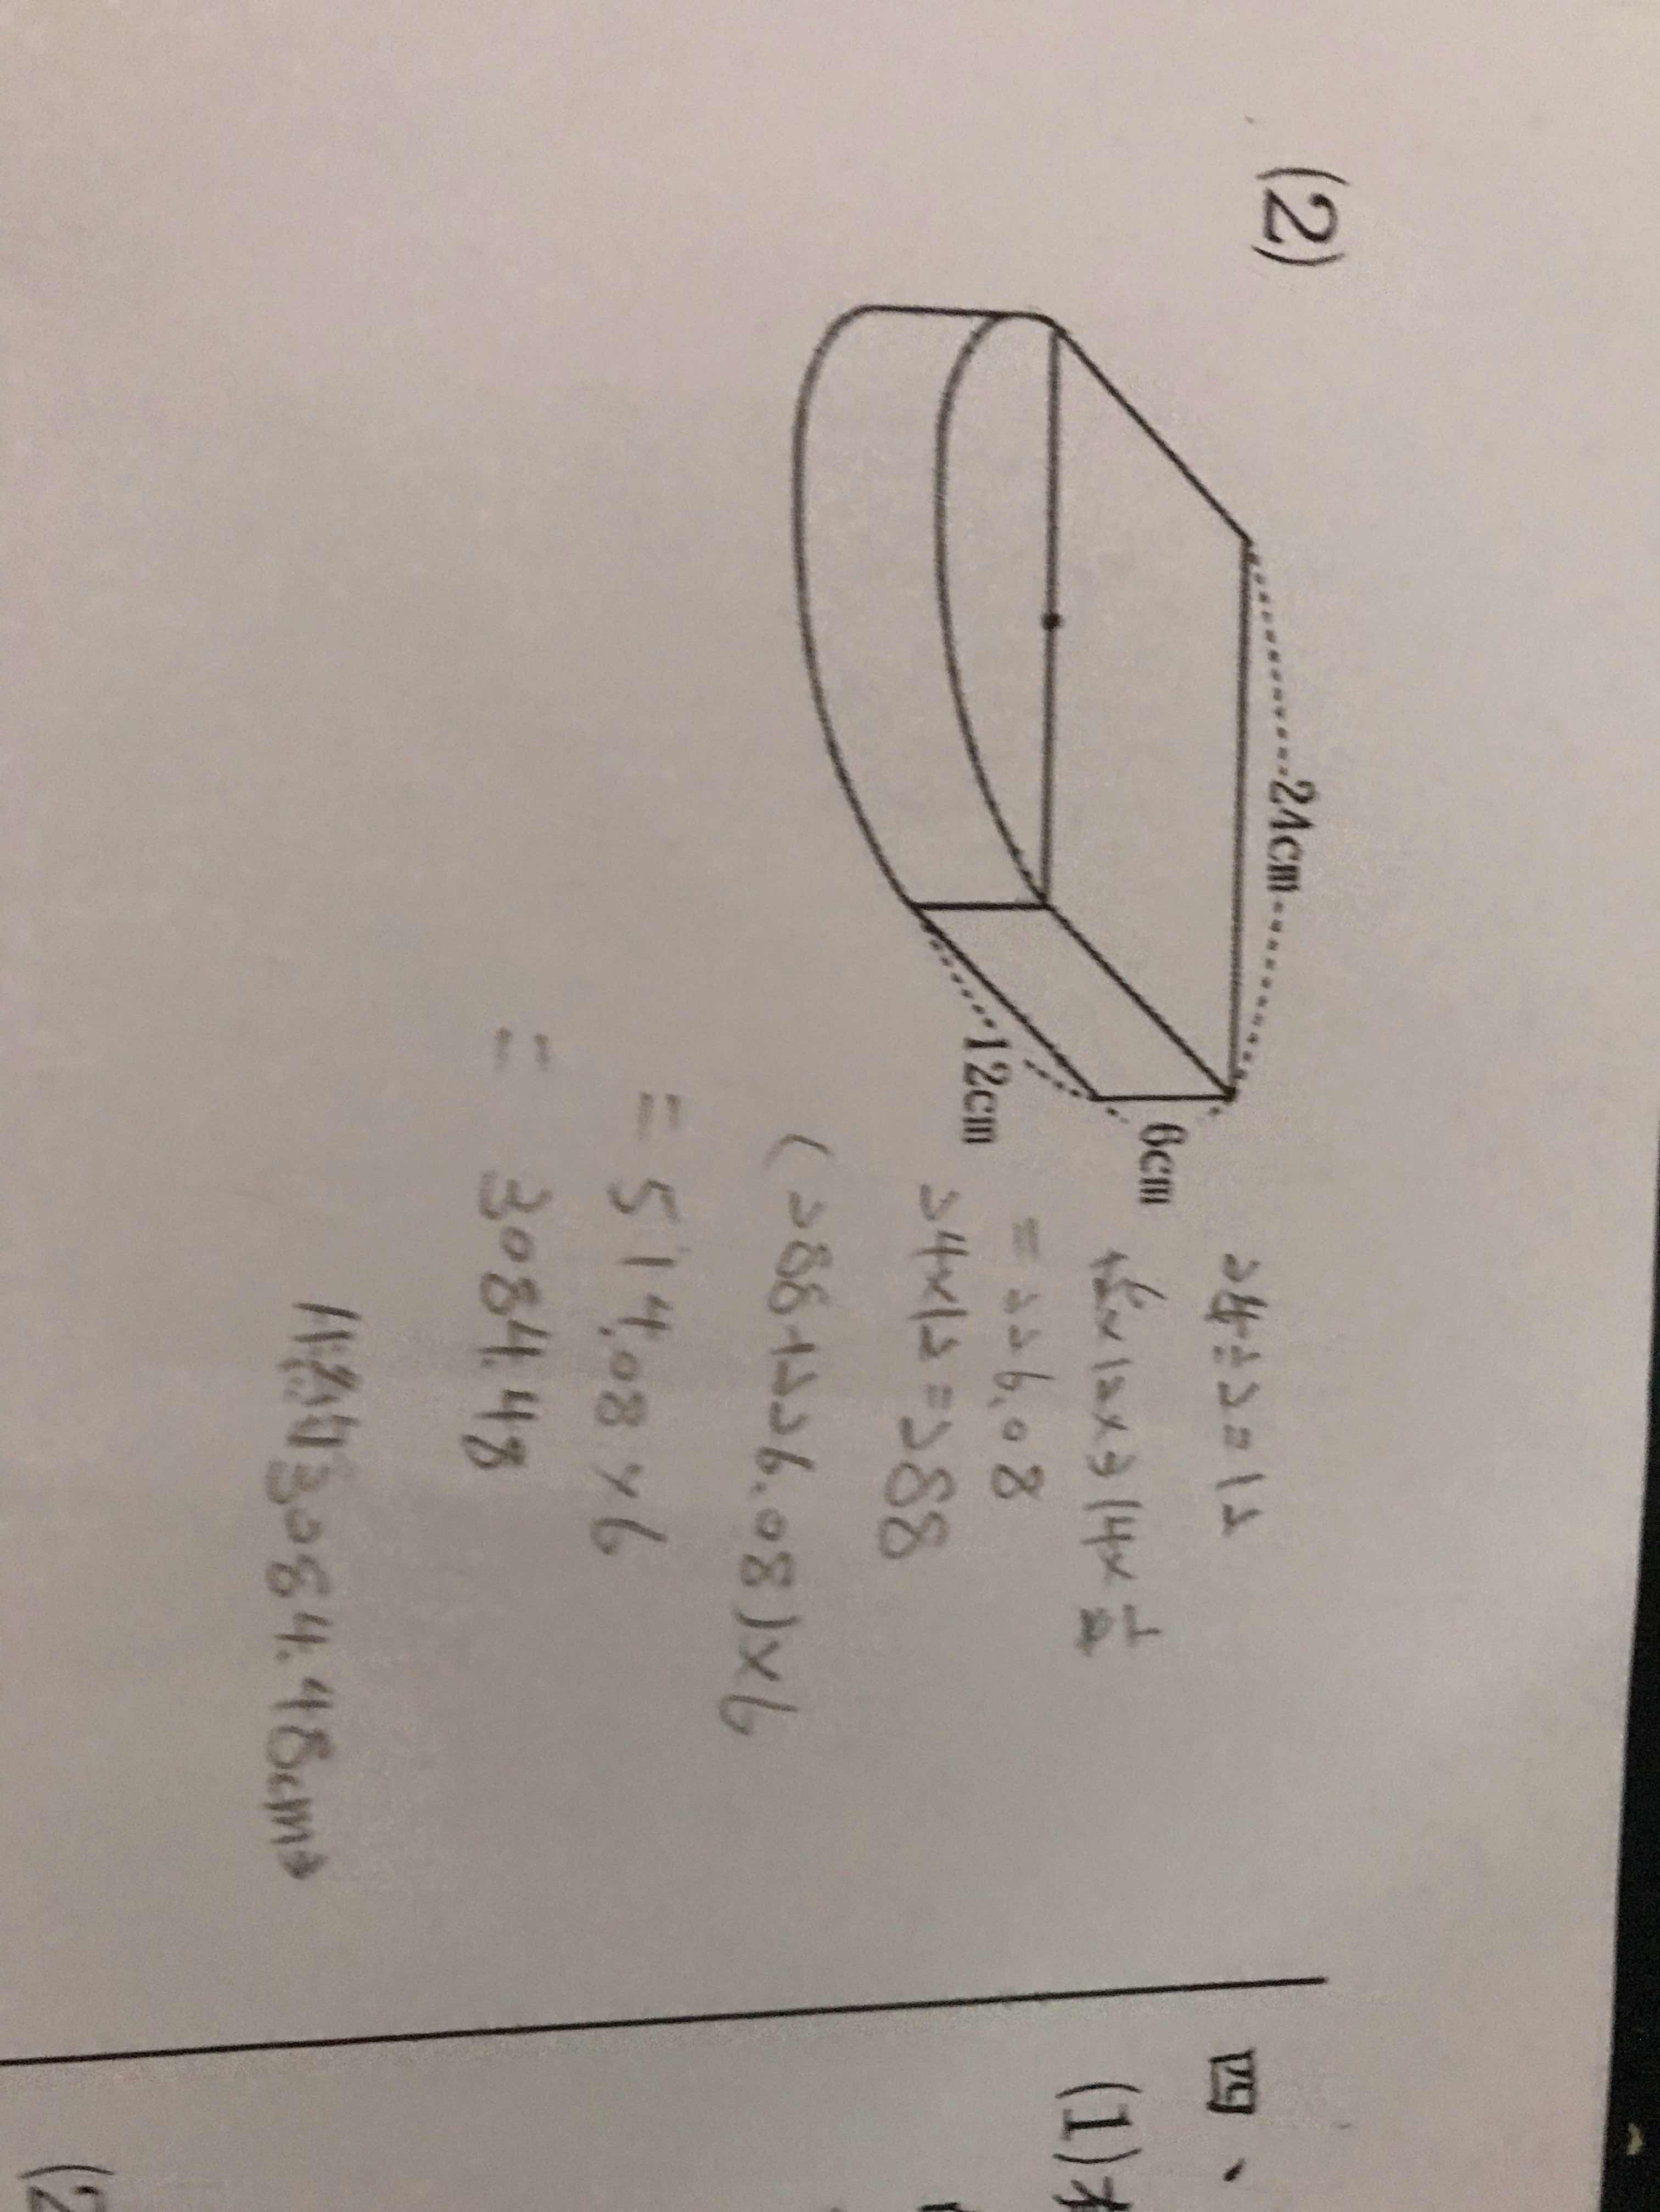 (2)
24cm
6cm
12cm
24÷2=12
12×12×3.14×1/2
=226.08
24×12=288
(288+226.08)×6
=514.08×6
=3084.48
3084.48cm³
四、
(1)
(2